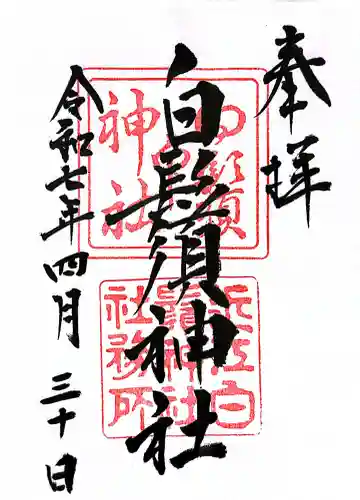 奉拝
白鬚神社
令和七年四月三十日
白鬚神社
近江白鬚神社社務所